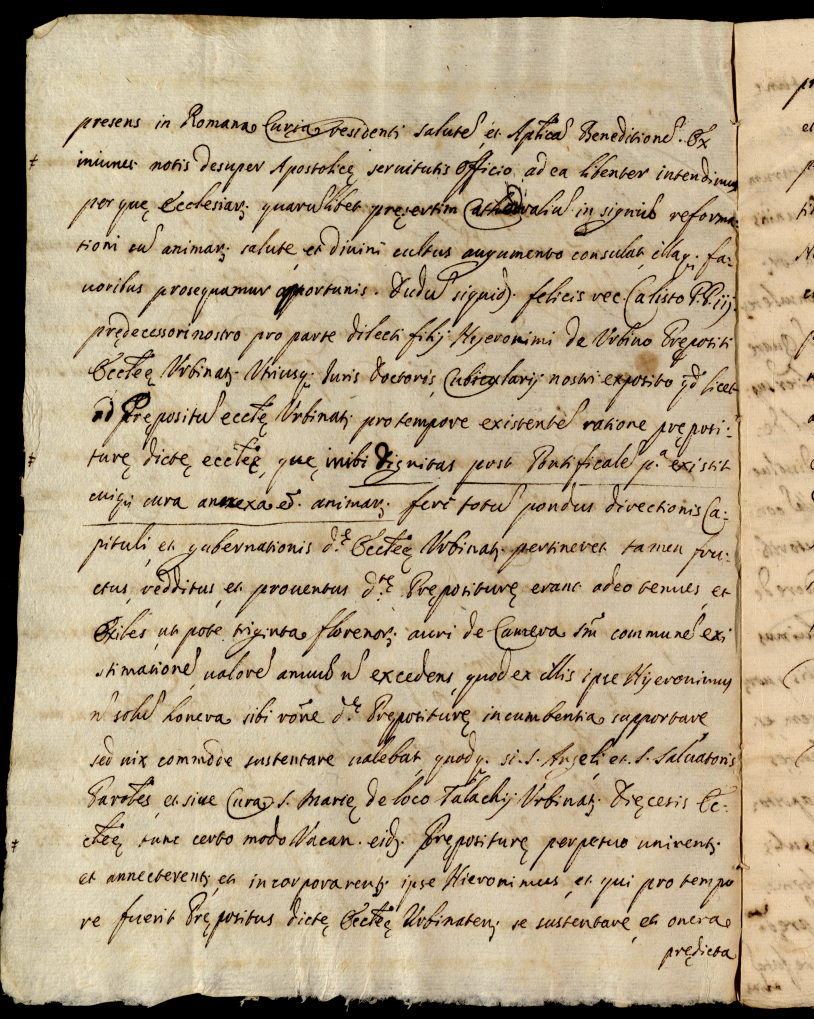 presens in Romana Curia residenti salutē, et Apticā Beneditionē. Ex
iniuncti nobis desuper Apostolicę seruitutis officio ad ea libenter intendimus
per quę Ecclesiarz quarūlibet pręsertim Cathedraliū insigniū reforma-
tioni cū animarz salute et diuini cultus augumento consulat, illaqz fa-
uoribus prosequamur opportunis. Dudū siquidz felicis rec. Calisto P.P. iij.
prędecessori nostro pro parte dilecti filij Hyeronimi de Urbino Prępositi
Eccłeę Urbinatz Utriusqz Iuris Doctoris Cubicularij nostri exposito qd licet
ad Prępositū ecctę Urbinatz pro tempore existentē ratione pręposi-
turę dictę eccłeę, quę inibi dignitas post Pontificalē p.ª existit
cuiqz cura annexa ē animarz fere totū pondus directionis Ca-
pituli, et gubernationis d.ę Eccłeę Urbinatz pertineret tamen fru-
ctus, redditus, et prouentus d.tę Pręposituré erant adeo tenues, et
Exiles, ut pote triginta florenorz auri de Camera sm̄ communē exi
stimationē, ualorē annuū n̄ excedens, quod ex illis ipse Hyeronimus
n̄ solū honera sibi rōne d.ę Pręposituré incumbentia supportare
sed uix commode sustentare ualebat, quodqz si S. Angeli et S. Saluatoris
Parōles, et siue Cura S. Marię de loco Talachij Urbinatz Dięcesis Ec-
cłeę tunc certo modo Vacan. eidz Pręposituré perpetuo unirentz
et annecterentz, et incorporarentz ipse Hieronimus, et qui pro tempo
re fuerit Prępositus dictę Eccłeę Urbinatenz se sustentare, et onera
prędicta